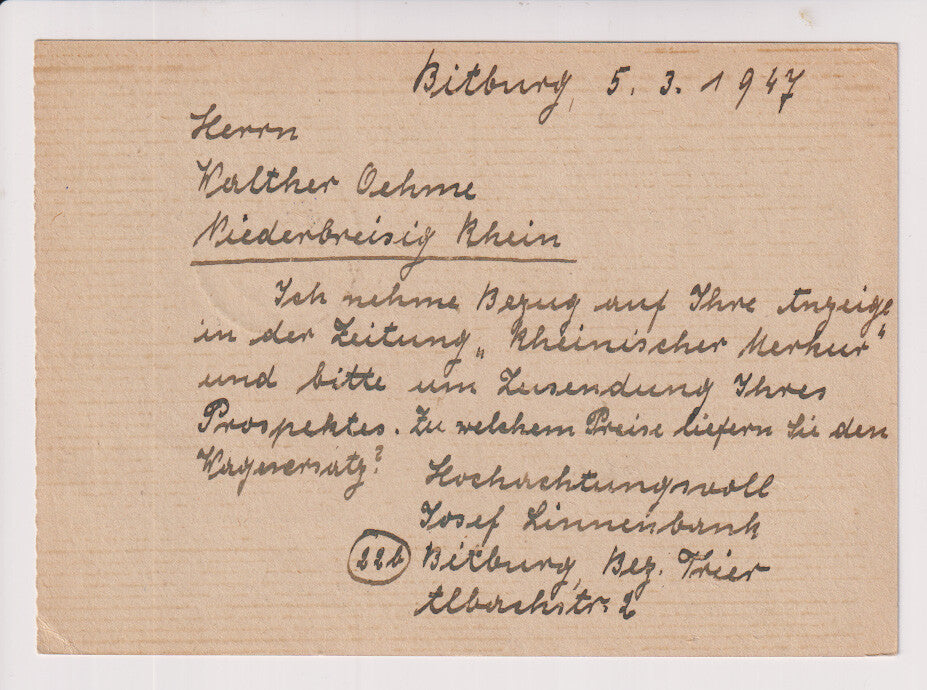 Bitburg, 5. 3. 1947
Herrn
Walther Oehme
Niederbreisig Rhein
Ich nehme Bezug auf Ihre Anzeige
in der Zeitung „Rheinischer Merkur“
und bitte um Zusendung Ihres
Prospektes. Zu welchem Preise liefern Sie den
Wagenersatz?
Hochachtungsvoll
Josef Linnenbank
22b Bitburg, Bez. Trier
Albachstr. 2